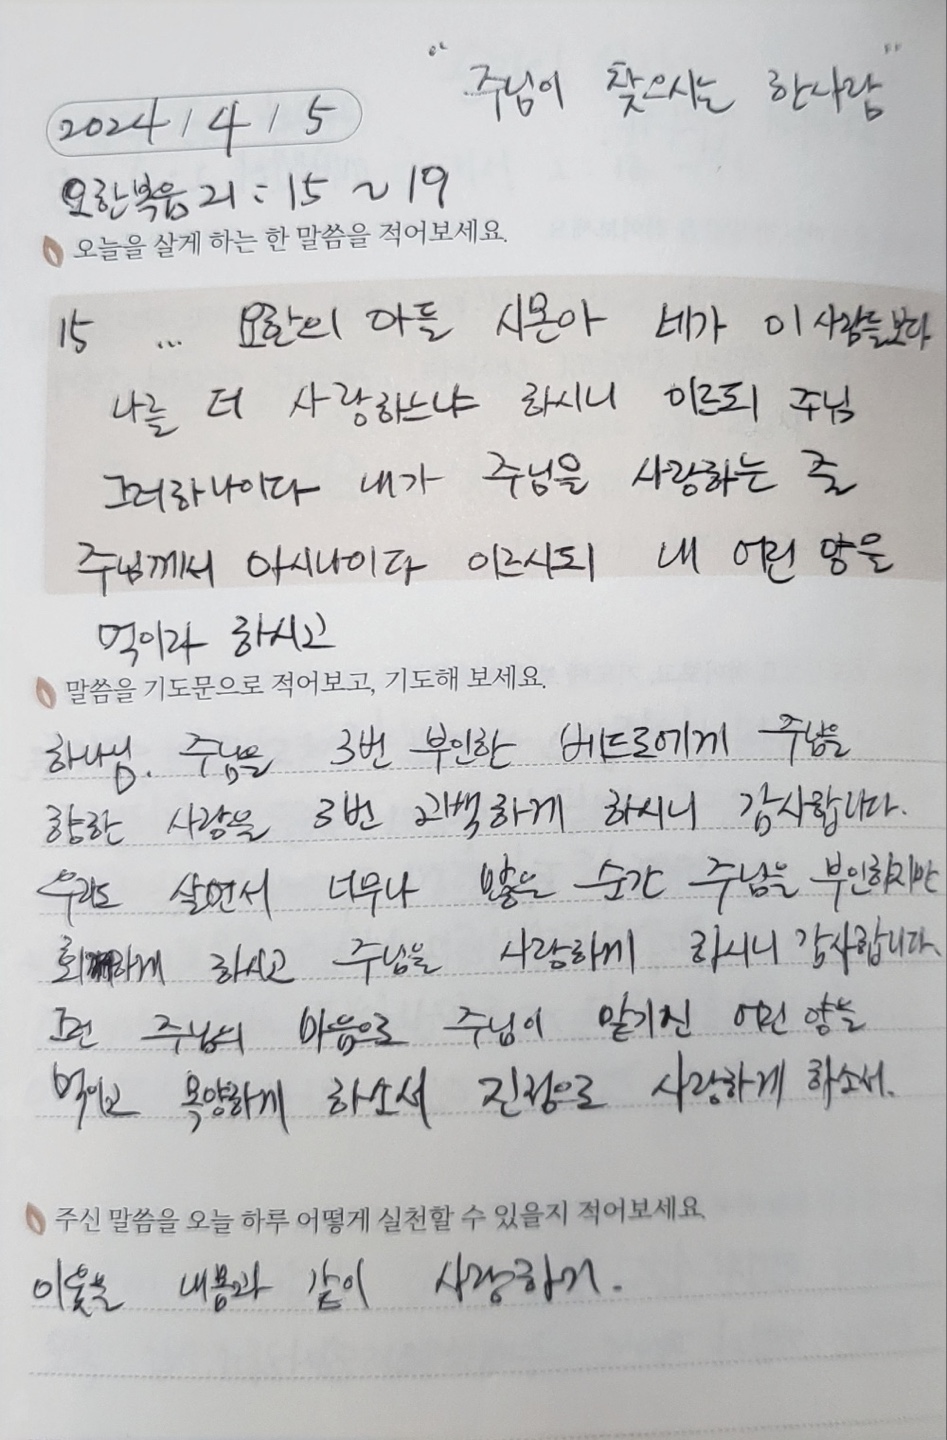 "주님이 찾으시는 한사람"
2024 / 4 / 5
요한복음 21 : 15 ~ 19
오늘을 살게 하는 한 말씀을 적어보세요.
15 ... 요한의 아들 시몬아 네가 이 사람들보다
나를 더 사랑하느냐 하시니 이르되 주님
그러하나이다 내가 주님을 사랑하는 줄
주님께서 아시나이다 이르시되 내 어린 양을
먹이라 하시고
말씀을 기도문으로 적어보고, 기도해 보세요.
하나님. 주님을 3번 부인한 베드로에게 주님을
향한 사랑을 3번 고백하게 하시니 감사합니다.
우리도 살면서 너무나 많은 순간 주님을 부인하지만
회개하게 하시고 주님을 사랑하게 하시니 감사합니다.
그런 주님의 마음으로 주님이 맡기신 어린 양을
먹이고 목양하게 하소서 진정으로 사랑하게 하소서.
주신 말씀을 오늘 하루 어떻게 실천할 수 있을지 적어보세요.
이웃을 내 몸과 같이 사랑하기.